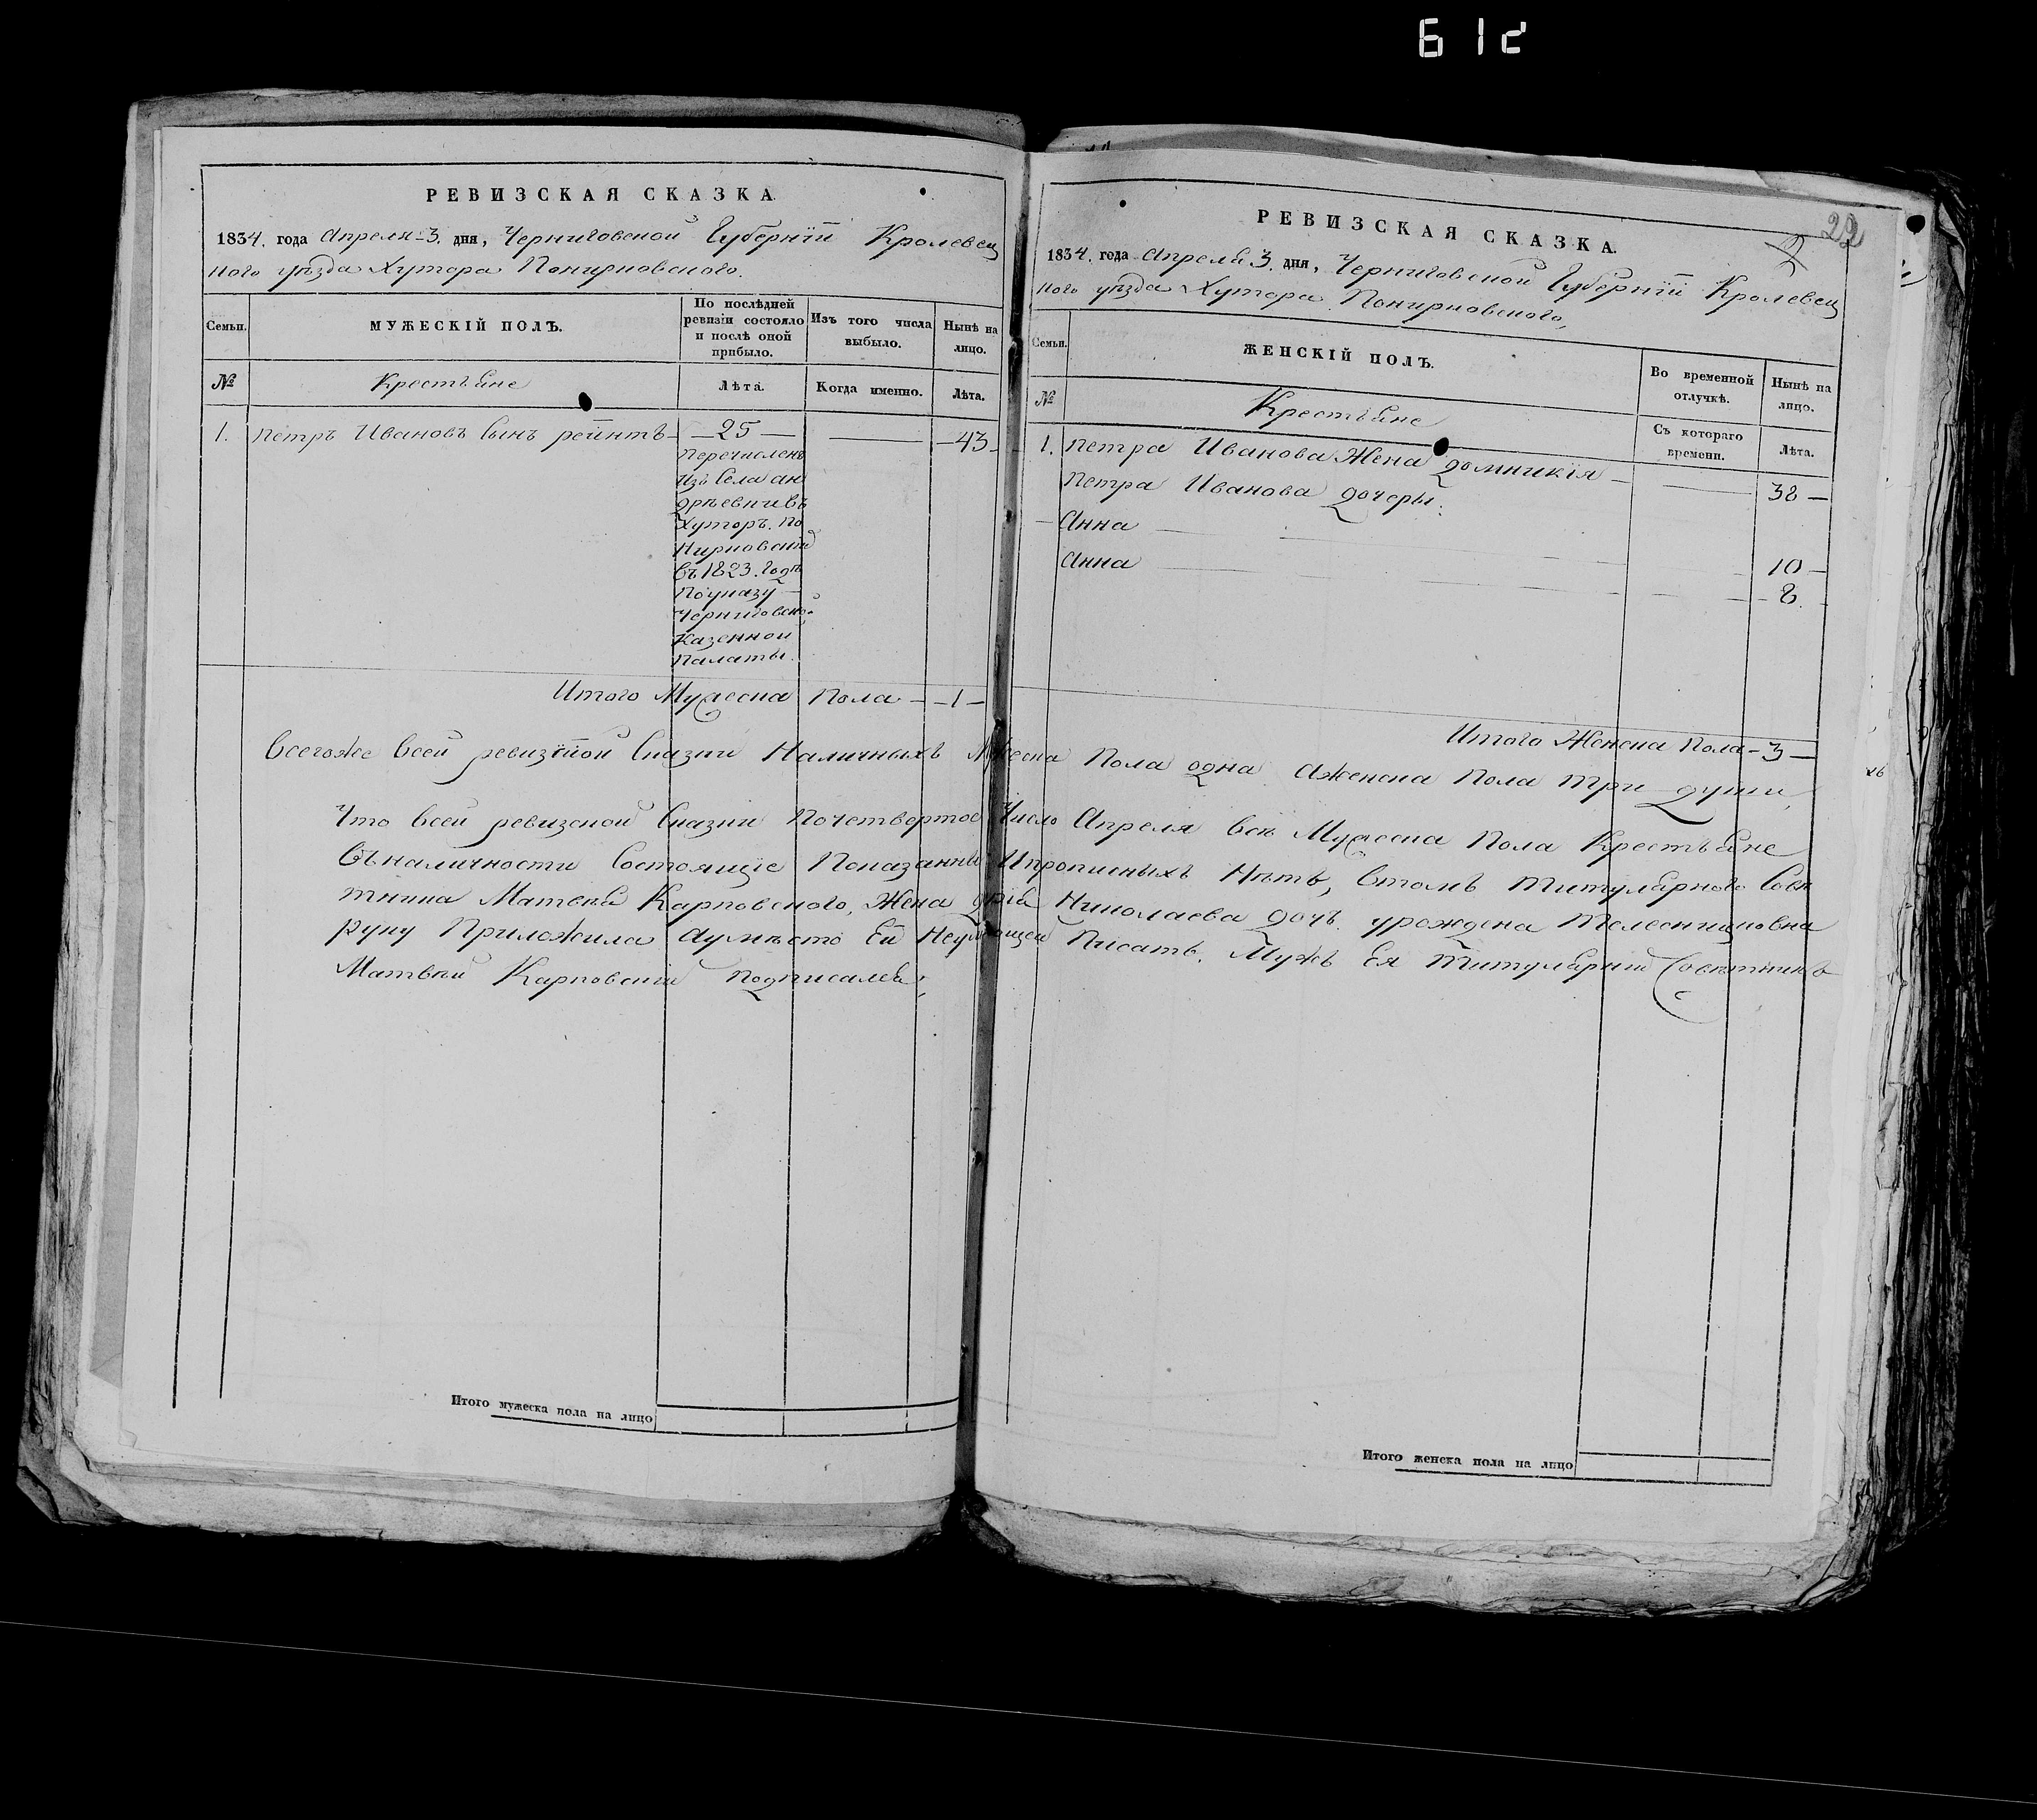 612
РЕВИЗСКАЯ СКАЗКА
1834. года Апреля 3. дня, Черниговской Губернїи Кролевец
кого уѣзда Хутора Покирковского.
Семьи.
МУЖЕСКІЙ ПОЛЪ.
По послѣдней ревизіи состояло и послѣ оной прибыло.
Изъ того числа выбыло.
Нынѣ на лицо.
№
Крестьяне
Лѣта.
Когда именно.
Лѣта.
1. Петръ Ивановъ Сынъ — 25 — — 43
Перечисленъ
Изъ Села Ан
дрѣевичивъ
Хуторъ. По
кирковский
Въ 1823. годѣ
По указу
Черниговской
Казенной
Палаты.
Итого Мужеска Пола — 1 —
РЕВИЗСКАЯ СКАЗКА.
22
1834. года Апреля 3. дня, Черниговской Губернїи Кролевец
кого уѣзда Хутора Покирковского,
Семьи.
ЖЕНСКІЙ ПОЛЪ.
Во временной отлучкѣ.
Нынѣ на лицо.
№
Крестьяне
Съ котораго времени.
Лѣта.
1. Петра Иванова Жена Домникїя — 38 —
Петра Иванова дочеры:
Анна — 10 —
Анна — 8.
Итого Женска Пола — 3 —
Всегоже Всей ревизкой Сказки Наличныхъ Мужеска Пола одна Аженска Пола три души,
Что Всей ревизской Сказки Почетвертое Число Апреля Всѣ Мужеска Пола Крестьяне
Въ наличности Состоящїе Показанны Ипрописныхъ Нѣтъ, Втомъ Титулярного Совѣ
тника Матвѣя Карповского, Жена Николаева дочъ урождена
руку Приложила Аумѣсто Ей Неумѣющей Писать, Мужъ Ея Титулярний Совѣтникъ
Матвѣй Карповский Подписался;
Итого мужеска пола на лицо
Итого женска пола на лицо